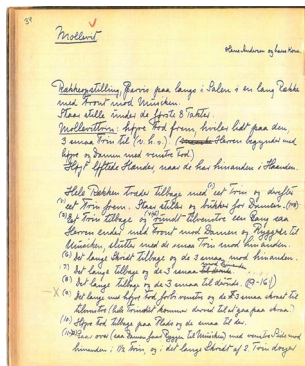 38
Mollevit
Hans Andersen og hans Kone.
Rækkeopstilling, Parvis paa langs i Salen i en lang Række
med Front mod Musiken.
Staar stille under de første 8 Takter.
Mollevittrin: højre Fod frem, hviler lidt paa den,
3 smaa Trin til (v. h. v.). (Herren begynder med
højre og Damen med venstre Fod.)
Højt løftede Hænder naar de har hinanden i Haanden.
Hele Rækken træder tilbage med eet Trin og derefter
eet Trin frem. Staar stille og bukker for Damen. (1-8)
Eet Trin tilbage og rundt tilvenstre een Gang saa
Herren ender med Front mod Damen og Ryggen til
Musiken, slutter med de smaa Trin mod hinanden.
(6) Det lange Skridt tilbage og de 3 smaa mod hinanden.
(7) Det lange tilbage og de 3 smaa
(8) Det lange tilbage og de 3 smaa til devinde. (9-16)
x (9) Det lange med højre Fod forbi venstre og de 3 smaa skraat til
tilvenstre
(10) Højre Fod tilbage paa Plads og de smaa til der.
(saa Damen faar Ryggen til Musiken) med venstre Side mod
hinanden, 1½ Trin, og i det lange Skridt af 2. Trin drejer